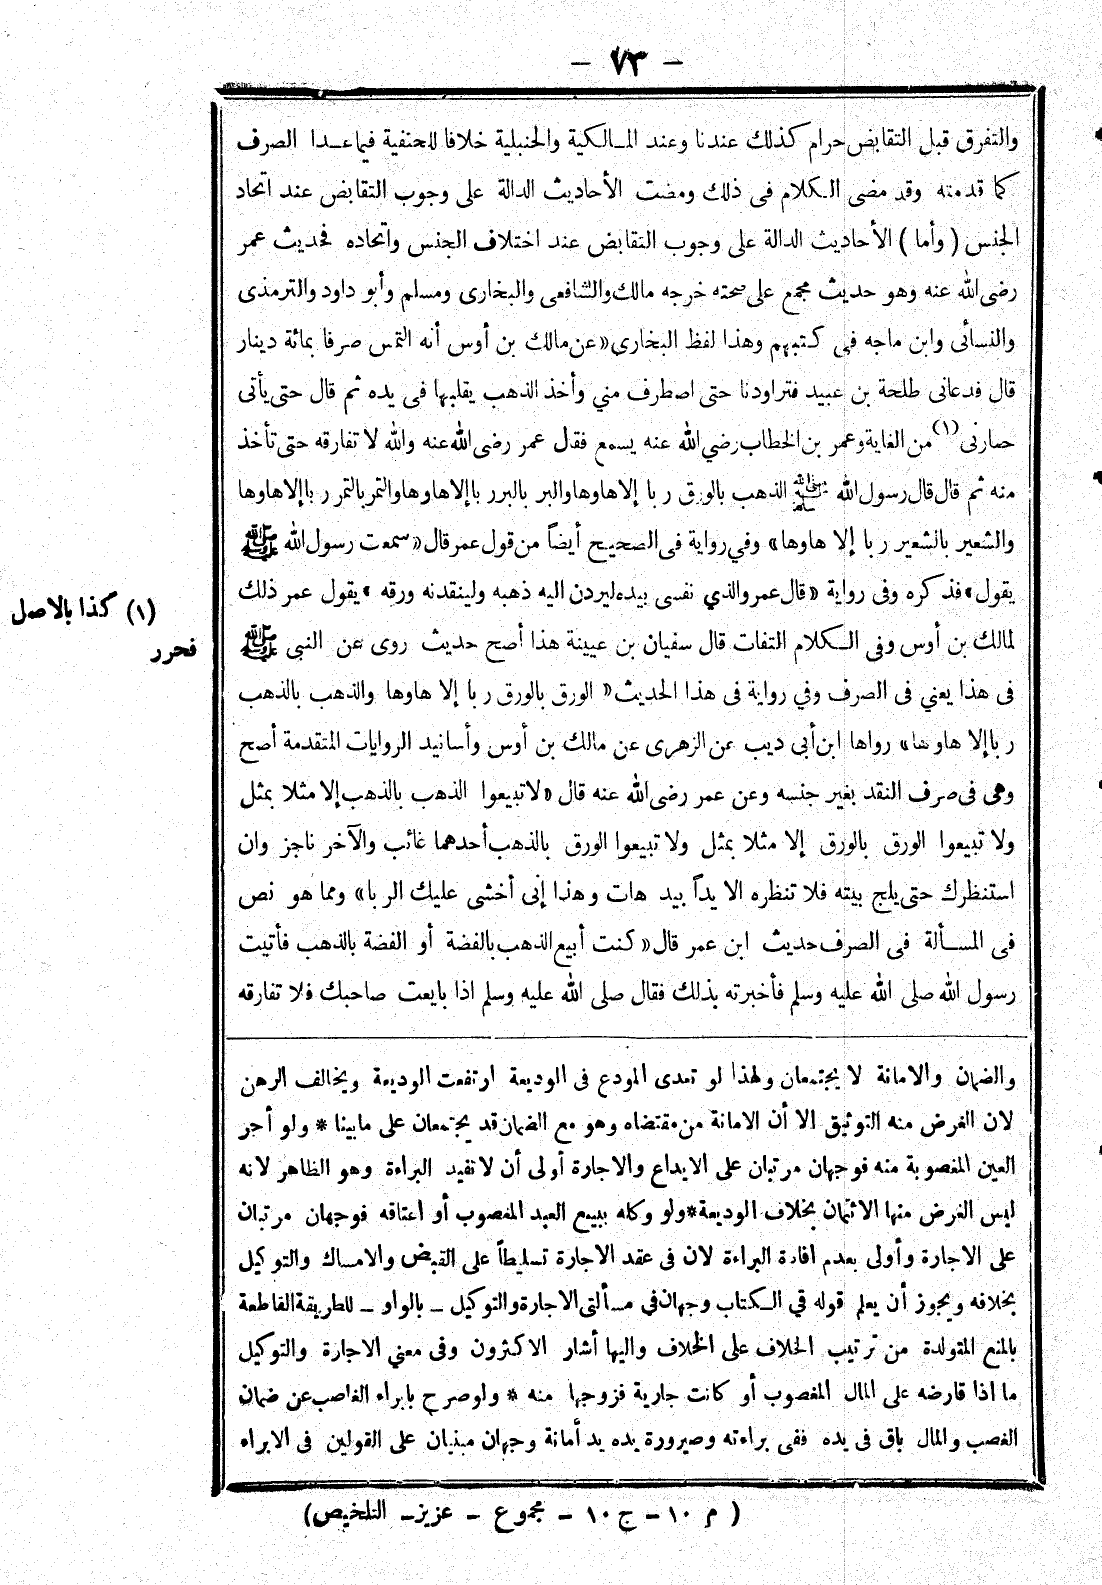 - ٧٣ -
والتفرق قبل التقابض حرام كذلك عندنا وعند المـالكية والحنبلية خلافا للحنفية فيماعـدا الصرف
كما قدمته وقد مضى الـكلام فى ذلك ومضت الأحاديث الدالة على وجوب التقابض عند اتحاد
الجنس ( وأما ) الأحاديث الدالة على وجوب التقابض عند اختلاف الجنس واتحاده فحديث عمر
رضى الله عنه وهو حديث مجمع على صحته خرجه مالك والشافعى والبخارى ومسلم وأبو داود والترمذى
والنسائى وابن ماجه فى كتبهم وهذا لفظ البخارى «عن مالك بن أوس أنه التمس صرفا بمائة دينار
قال فدعانى طلحة بن عبيد فتراودنا حتى اصطرف مني وأخذ الذهب يقلبها فى يده ثم قال حتى يأتى
حمارتى (١) من الغاية وعمر بن الخطاب رضي الله عنه يسمع فقال عمر رضى الله عنه والله لا تفارقه حتى تأخذ
منه ثم قال قال رسول الله ﷺ الذهب بالورق ربا إلا هاوها والبر بالبرر باإلا هاوها والتمر بالتمر ربا إلا هاوها
والشعير بالشعير ربا إلا هاوها» وفي رواية فى الصحيح أيضاً من قول عمر قال «سمعت رسول الله ﷺ
يقول» فذكره وفى رواية «قال عمر والذي نفسى بيده ليردن اليه ذهبه ولينقدنه ورقه » يقول عمر ذلك
لمالك بن أوس وفى الـكلام التفات قال سفيان بن عيينة هذا أصح حديث روى عن النبى ﷺ
فى هذا يعني فى الصرف وفي رواية فى هذا الحديث « الورق بالورق ربا إلا هاوها والذهب بالذهب
ربا إلا هاوها» رواها ابن أبى ديب عن الزهرى عن مالك بن أوس وأسانيد الروايات المتقدمة أصح
وهى فى صرف النقد بغير جنسه وعن عمر رضى الله عنه قال «لا تبيعوا الذهب بالذهب إلا مثلا بمثل
ولا تبيعوا الورق بالورق إلا مثلا بمثل ولا تبيعوا الورق بالذهب أحدهما غائب والآخر ناجز وان
استنظرك حتى يلج بيته فلا تنظره الا يداً بيد هات وهذا إنى أخشى عليك الربا» ومما هو نص
فى المسـألة فى الصرف حديث ابن عمر قال «كنت أبيع الذهب بالفضة أو الفضة بالذهب فأتيت
رسول الله صلى الله عليه وسلم فأخبرته بذلك فقال صلى الله عليه وسلم اذا بايعت صاحبك فلا تفارقه
(١) كذا بالاصل
فحرر
والضمان والامانة لا يجتمعان ولهذا لو تعدى المودع فى الوديعة ارتفعت الوديعة ويخالف الرهن
لان الغرض منه التوثيق الا أن الامانة من مقتضاه وهو مع الضمان قد يجتمعان على مابينا * ولو أجر
العين المغصوبة منه فوجهان مرتبان على الايداع والاجارة أولى أن لا تفيد البراءة وهو الظاهر لانه
ليس الغرض منها الائتمان بخلاف الوديعة * ولو وكله ببيع العبد المغصوب أو اعتاقه فوجهان مرتبان
على الاجارة وأولى بعدم افادة البراءة لان فى عقد الاجارة تسليطاً على القبض والامساك والتوكيل
بخلافه ويجوز أن يعلم قوله قي الـكتاب وجهان في مسألتى الاجارة والتوكيل ـ بالواو ـ للطريقة القاطعة
بالمنع المتولدة من ترتيب الخلاف على الخلاف واليها أشار الاكثرون وفى معني الاجارة والتوكيل
ما اذا قارضه على المال المغصوب أو كانت جارية فزوجها منه * ولو صرح بابراء الغاصب عن ضمان
الغصب والمال باق فى يده ففى براءته وصيرورة يده يد أمانة وجهان مبنيان على القولين فى الابراء
( م ١٠ - ج ١٠ - مجموع - عزيز - التلخيص)